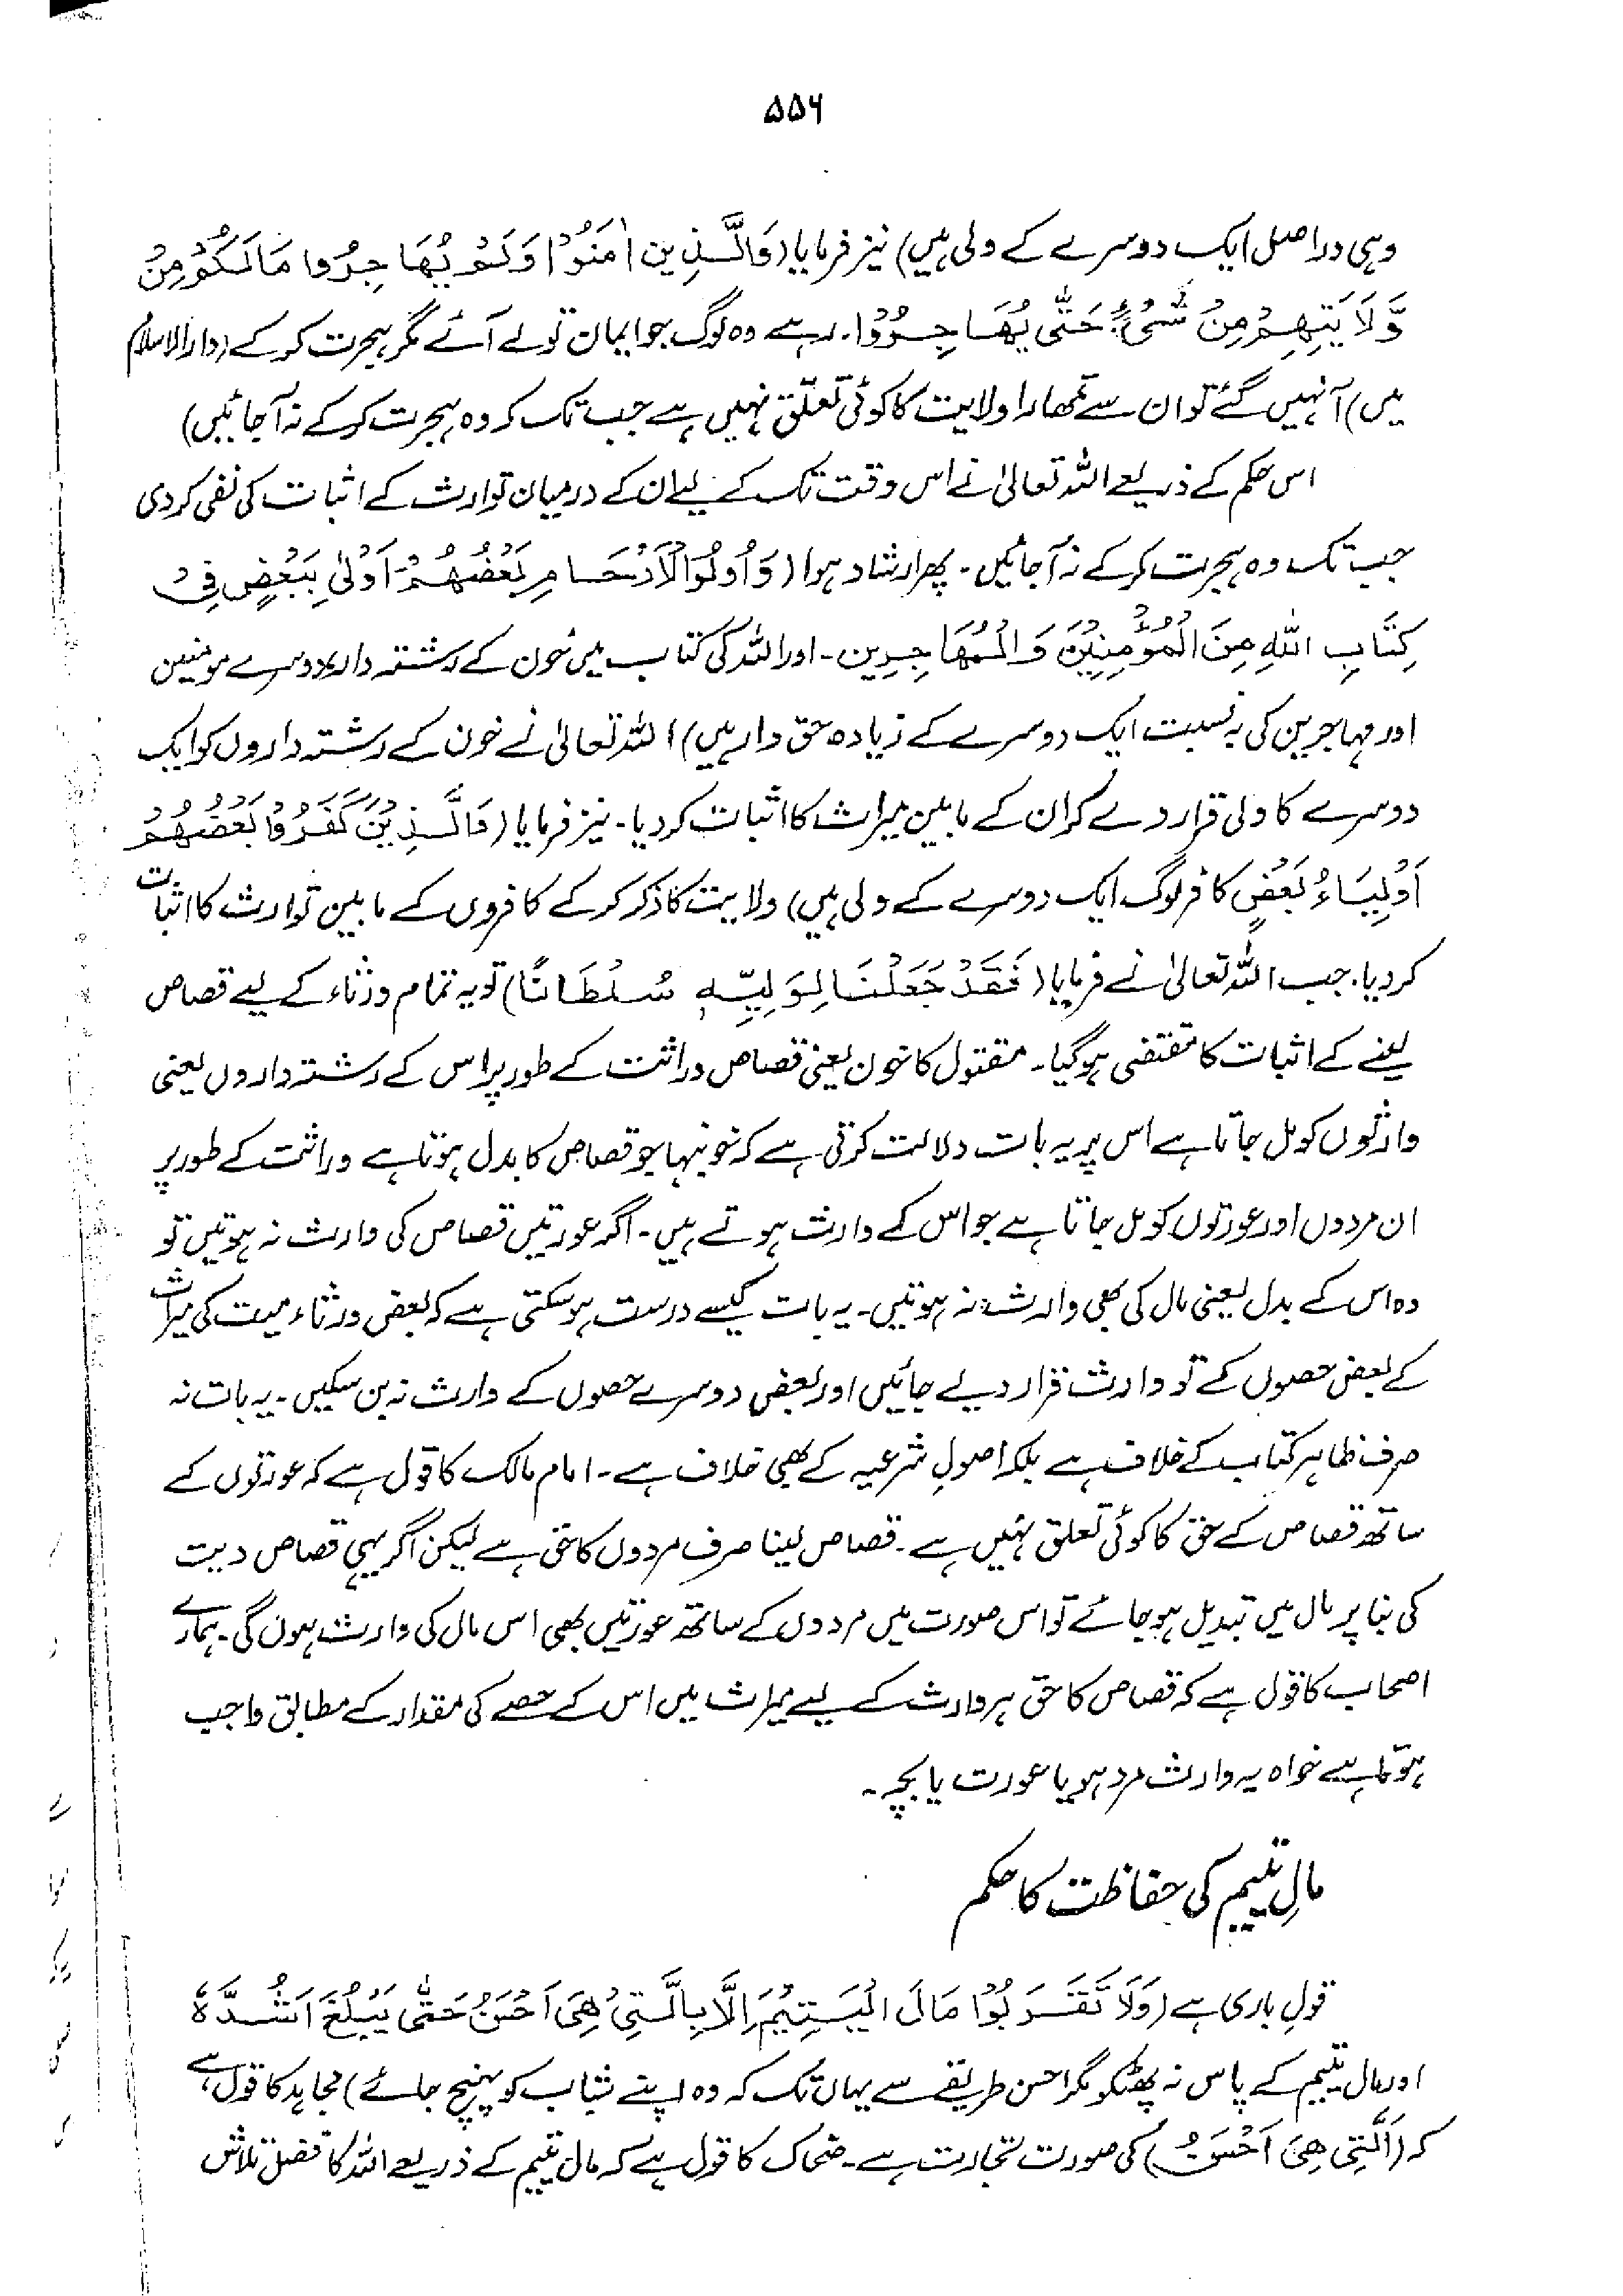 ۵۵۶
وہی دراصل ایک دوسرے کے ولی ہیں) نیز فرمایا (وَالَّذِین اٰمَنُوْا وَلَمْ یُھَاجِرُوا مَالَکُمْ مِنْ
وَّلَایَتِھِمْ مِنْ شَیْءٍ حَتّٰی یُھَاجِرُوْا۔ رہے وہ لوگ جو ایمان تو لے آئے مگر ہجرت کرکے (دارالاسلام
میں) آ نہیں گئے تو ان سے تمھارا ولایت کا کوئی تعلّق نہیں ہے جب تک کہ وہ ہجرت کرکے نہ آجائیں)
اس حکم کے ذریعے اللہ تعالیٰ نے اس وقت تک کے لیے ان کے درمیان توارث کے اثبات کی نفی کردی
جب تک وہ ہجرت کرکے نہ آجائیں۔ پھر ارشاد ہوا (وَاُولُوا الْاَرْحَامِ بَعْضُھُمْ اَوْلٰی بِبَعْضٍ فِیْ
کِتَابِ اللہِ مِنَ الْمُؤْمِنِیْنَ وَالْمُھَاجِرِین۔ اور اللہ کی کتاب میں خون کے رشتہ دار دوسرے مومنین
اور مہاجرین کی بہ نسبت ایک دوسرے کے زیادہ حق دار ہیں) اللہ تعالیٰ نے خون کے رشتہ داروں کو ایک
دوسرے کا ولی قرار دے کر ان کے مابین میراث کا اثبات کردیا۔ نیز فرمایا (وَالَّذِیْنَ کَفَرُوْا بَعْضُھُمْ
اَوْلِیَاءُ بَعْضٍ کافر لوگ ایک دوسرے کے ولی ہیں) ولایت کا ذکر کرکے کافروں کے مابین توارث کا اثبات
کردیا۔ جب اللہ تعالیٰ نے فرمایا (فَقَدْ جَعَلْنَا لِوَلِیِّہٖ سُلْطَانًا) تو یہ تمام ورثاء کے لیے قصاص
لینے کے اثبات کا مقتضی ہوگیا۔ مقتول کا خون یعنی قصاص وراثت کے طور پر اس کے رشتہ داروں یعنی
وارثوں کو مل جاتا ہے اس پر یہ بات دلالت کرتی ہے کہ خونبہا جو قصاص کا بدل ہوتا ہے وراثت کے طور پر
ان مردوں اور عورتوں کو مل جاتا ہے جو اس کے وارث ہوتے ہیں۔ اگر عورتیں قصاص کی وارث نہ ہوتیں تو
وہ اس کے بدل یعنی مال کی بھی وارث نہ ہوتیں۔ یہ بات کیسے درست ہوسکتی ہے کہ بعض ورثاء میت کی میراث
کے بعض حصوں کے تو وارث قرار دیے جائیں اور بعض دوسرے حصوں کے وارث نہ بن سکیں۔ یہ بات نہ
صرف ظاہر کتاب کے خلاف ہے بلکہ اصولِ شرعیہ کے بھی خلاف ہے۔ امام مالک کا قول ہے کہ عورتوں کے
ساتھ قصاص کے حق کا کوئی تعلق نہیں ہے۔ قصاص لینا صرف مردوں کا حق ہے لیکن اگر یہی قصاص دیت
کی بنا پر مال میں تبدیل ہوجائے تو اس صورت میں مردوں کے ساتھ عورتیں بھی اس مال کی وارث ہوں گی۔ ہمارے
اصحاب کا قول ہے کہ قصاص کا حق ہر وارث کے لیے میراث میں اس کے حصے کی مقدار کے مطابق واجب
ہوتا ہے خواہ یہ وارث مرد ہو یا عورت یا بچہ۔
مالِ یتیم کی حفاظت کا حکم
قولِ باری ہے (وَلَا تَقْرَبُوْا مَالَ الْیَتِیْمِ اِلَّا بِالَّتِیْ ھِیَ اَحْسَنُ حَتّٰی یَبْلُغَ اَشُدَّہٗ
اور مال یتیم کے پاس نہ پھٹکو مگر احسن طریقے سے یہاں تک کہ وہ اپنے شباب کو پہنچ جائے) مجاہد کا قول ہے
کہ (اَلَّتِیْ ھِیَ اَحْسَنُ) کی صورت تجارت ہے۔ ضحاک کا قول ہے کہ مال یتیم کے ذریعے اللہ کا فضل تلاش